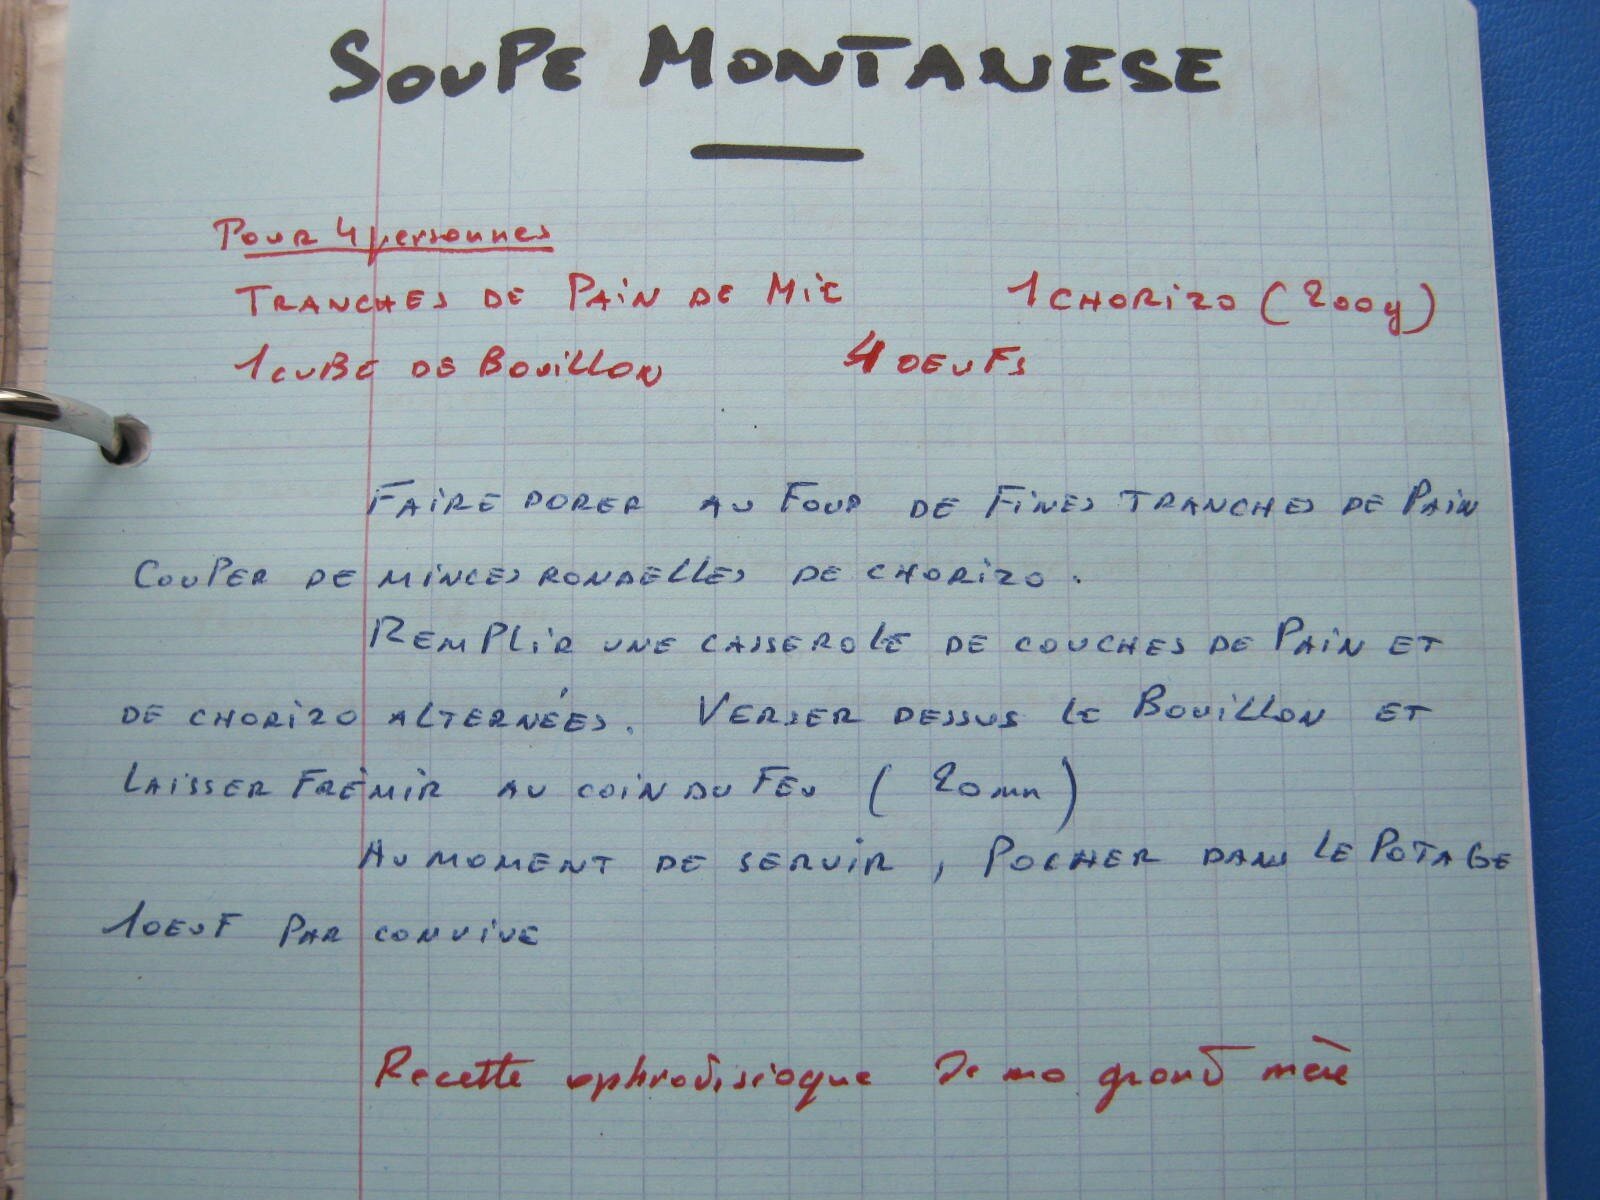 SOUPE MONTANESE
Pour 4 personnes
TRANCHES DE PAIN DE MIE 1 CHORIZO (200g)
1 CUBE DE BOUILLON 4 OEUFS
FAIRE DORER AU FOUR DE FINES TRANCHES DE PAIN
COUPER DE MINCES RONDELLES DE CHORIZO.
REMPLIR UNE CASSEROLE DE COUCHES DE PAIN ET
DE CHORIZO ALTERNÉES. VERSER DESSUS LE BOUILLON ET
LAISSER FRÉMIR AU COIN DU FEU (20 mn)
AU MOMENT DE SERVIR, POCHER DANS LE POTAGE
1 OEUF PAR CONVIVE
Recette aphrodisiaque De ma grand mère